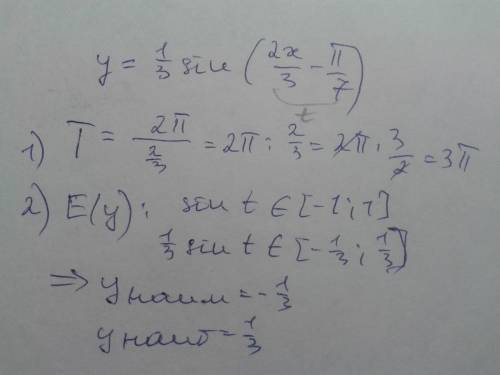 y = 1/3 sin (2x/3 - π/7)
t
1) T = 2π/(2/3) = 2π : 2/3 = 2π · 3/2 = 3π
2) E(y): sin t ∈ [-1; 1]
1/3 sin t ∈ [-1/3; 1/3]
⇒ y наим = -1/3
y наиб = 1/3